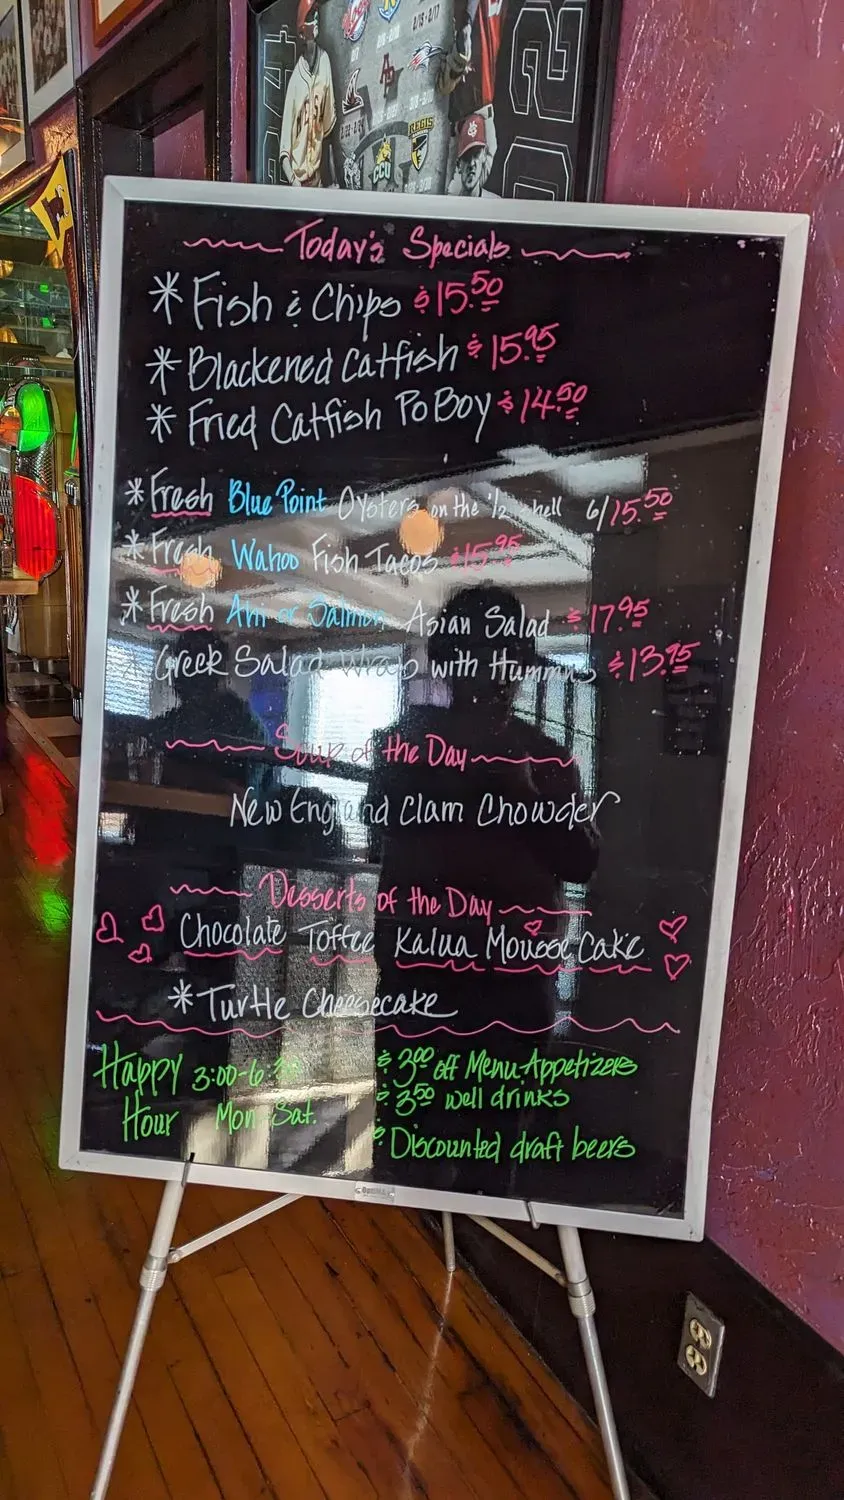 2/15 - 2/17
CCU
REGIS
Today's Specials
* Fish & Chips $15.50
* Blackened Catfish $15.95
* Fried Catfish PoBoy $14.50
* Fresh Blue Point Oysters on the 1/2 shell 6/15.50
* Fresh Wahoo Fish Tacos $15.95
* Fresh Ahi or Salmon Asian Salad $17.95
* Greek Salad Wrap with Hummus $13.95
Soup of the Day
New England Clam Chowder
Desserts of the Day
Chocolate Toffee Kalua Mousse Cake
* Turtle Cheesecake
Happy 3:00-6:30
Hour Mon-Sat.
$3.00 off Menu Appetizers
$3.50 well drinks
$Discounted draft beers